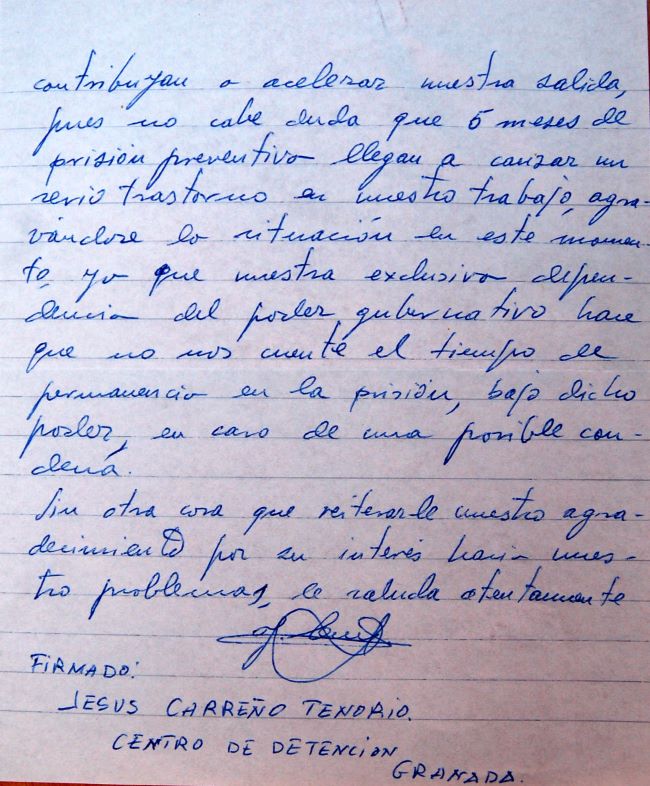 contribuyan a acelerar nuestra salida,
pues no cabe duda que 5 meses de
prisión preventiva llegan a causar un
serio trastorno en nuestro trabajo, agra-
vándose la situación en este momen-
to, ya que nuestra exclusiva depen-
dencia del poder gubernativo hace
que no nos cuente el tiempo de
permanencia en la prisión, bajo dicho
poder, en caso de una posible con-
dena.
Sin otra cosa que reiterarle nuestro agra-
decimiento por su interés hacia nues-
tro problema, le saluda atentamente
FIRMADO:
JESUS CARREÑO TENORIO.
CENTRO DE DETENCION
GRANADA.